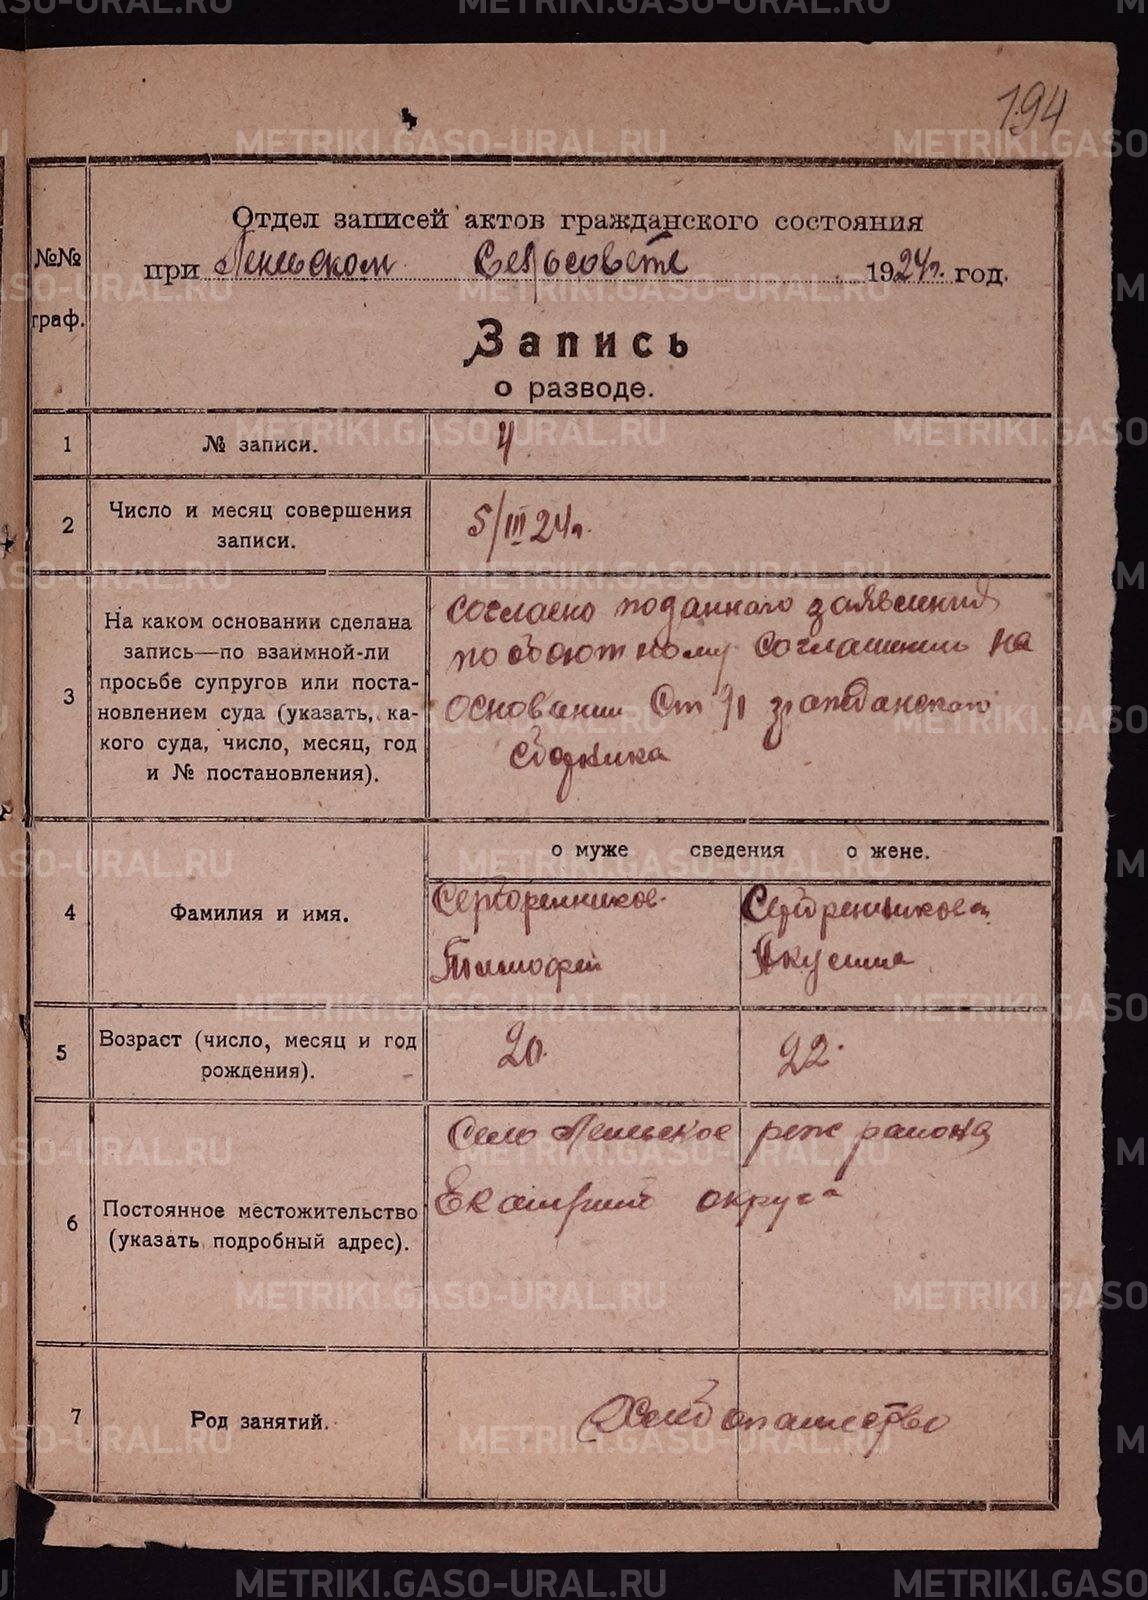 194
Отдел записей актов гражданского состояния
№№
при Леневском Сельсовете 1924г. год.
граф.
Запись
о разводе.
1 № записи. 4
2 Число и месяц совершения
записи.
5/III 24г.
3 На каком основании сделана
запись—по взаимной-ли
просьбе супругов или поста-
новлением суда (указать, ка-
кого суда, число, месяц, год
и № постановления).
согласно поданного заявления
по обоютному соглашению на
основании Ст гражданского
сборника
о муже сведения о жене.
4 Фамилия и имя.
Серебренников Серебренникова
Тимофей Акулина
5 Возраст (число, месяц и год
рождения).
20. 22.
6 Постоянное местожительство
(указать подробный адрес).
Село Леневское реж района
Екатерин округа
7 Род занятий. Хлебопашество
METRIKI.GASO-URAL.RU